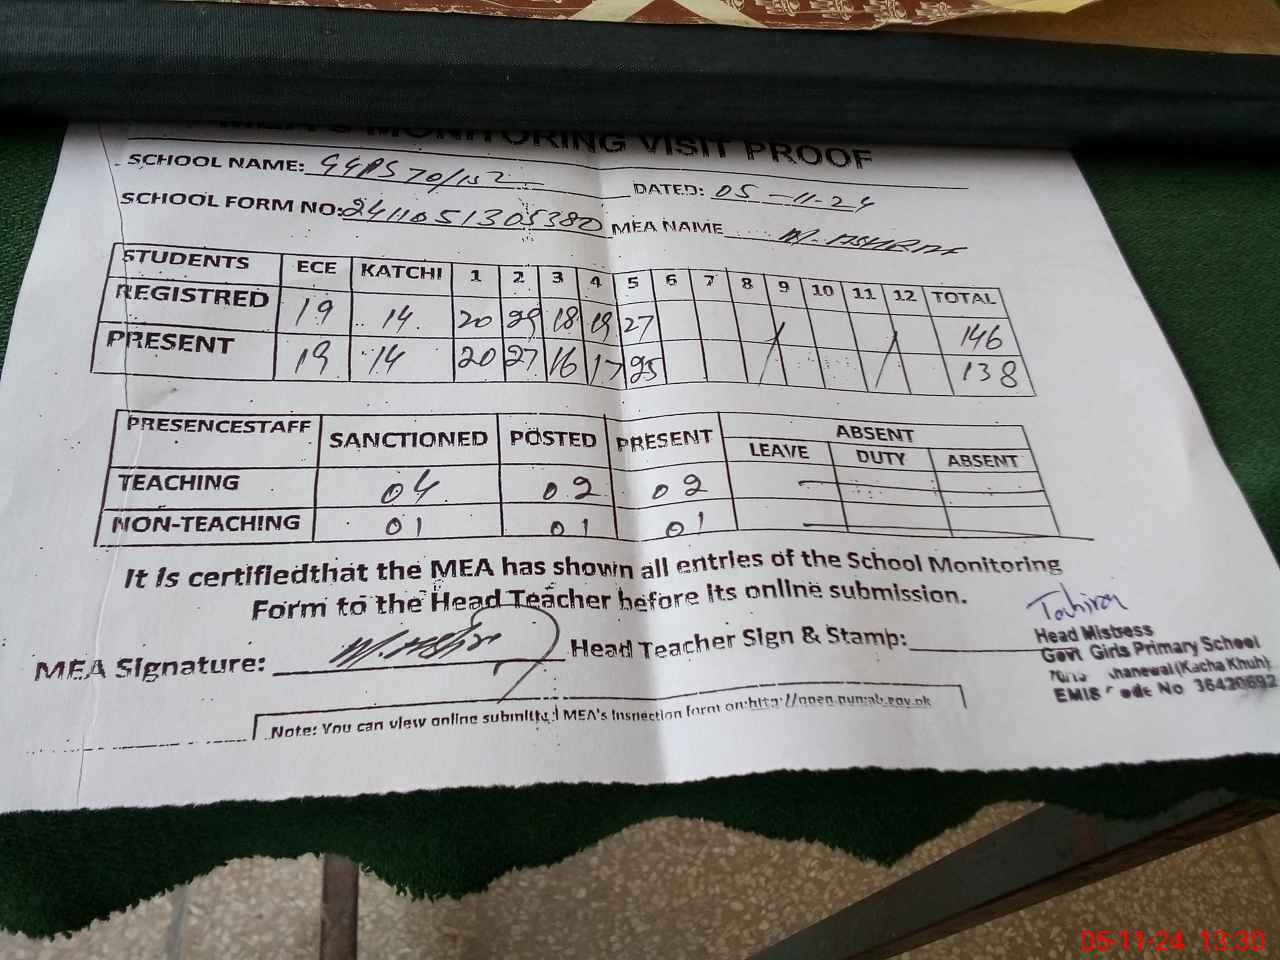 MEA'S MONITORING VISIT PROOF
SCHOOL NAME: GGPS 70/15L
DATED: 05-11-24
SCHOOL FORM NO: 2411051305380 MEA NAME M. ASHRAF
STUDENTS ECE KATCHI 1 2 3 4 5 6 7 8 9 10 11 12 TOTAL
REGISTRED 19 14 20 29 18 19 27 146
PRESENT 19 14 20 27 16 17 25 138
PRESENCESTAFF SANCTIONED POSTED PRESENT ABSENT
LEAVE DUTY ABSENT
TEACHING 04 02 02
NON-TEACHING 01 01 01
It is certifiedthat the MEA has shown all entries of the School Monitoring
Form to the Head Teacher before its online submission.
MEA Signature: M. Ashraf Head Teacher Sign & Stamp:
Tahira
Head Mistress
Govt Girls Primary School
Khanewal (Kacha Khuh)
EMIS Code No 36420692
Note: You can view online submitted MEA's inspection form on:http://open.punjab.gov.pk
05-11-24 13:30